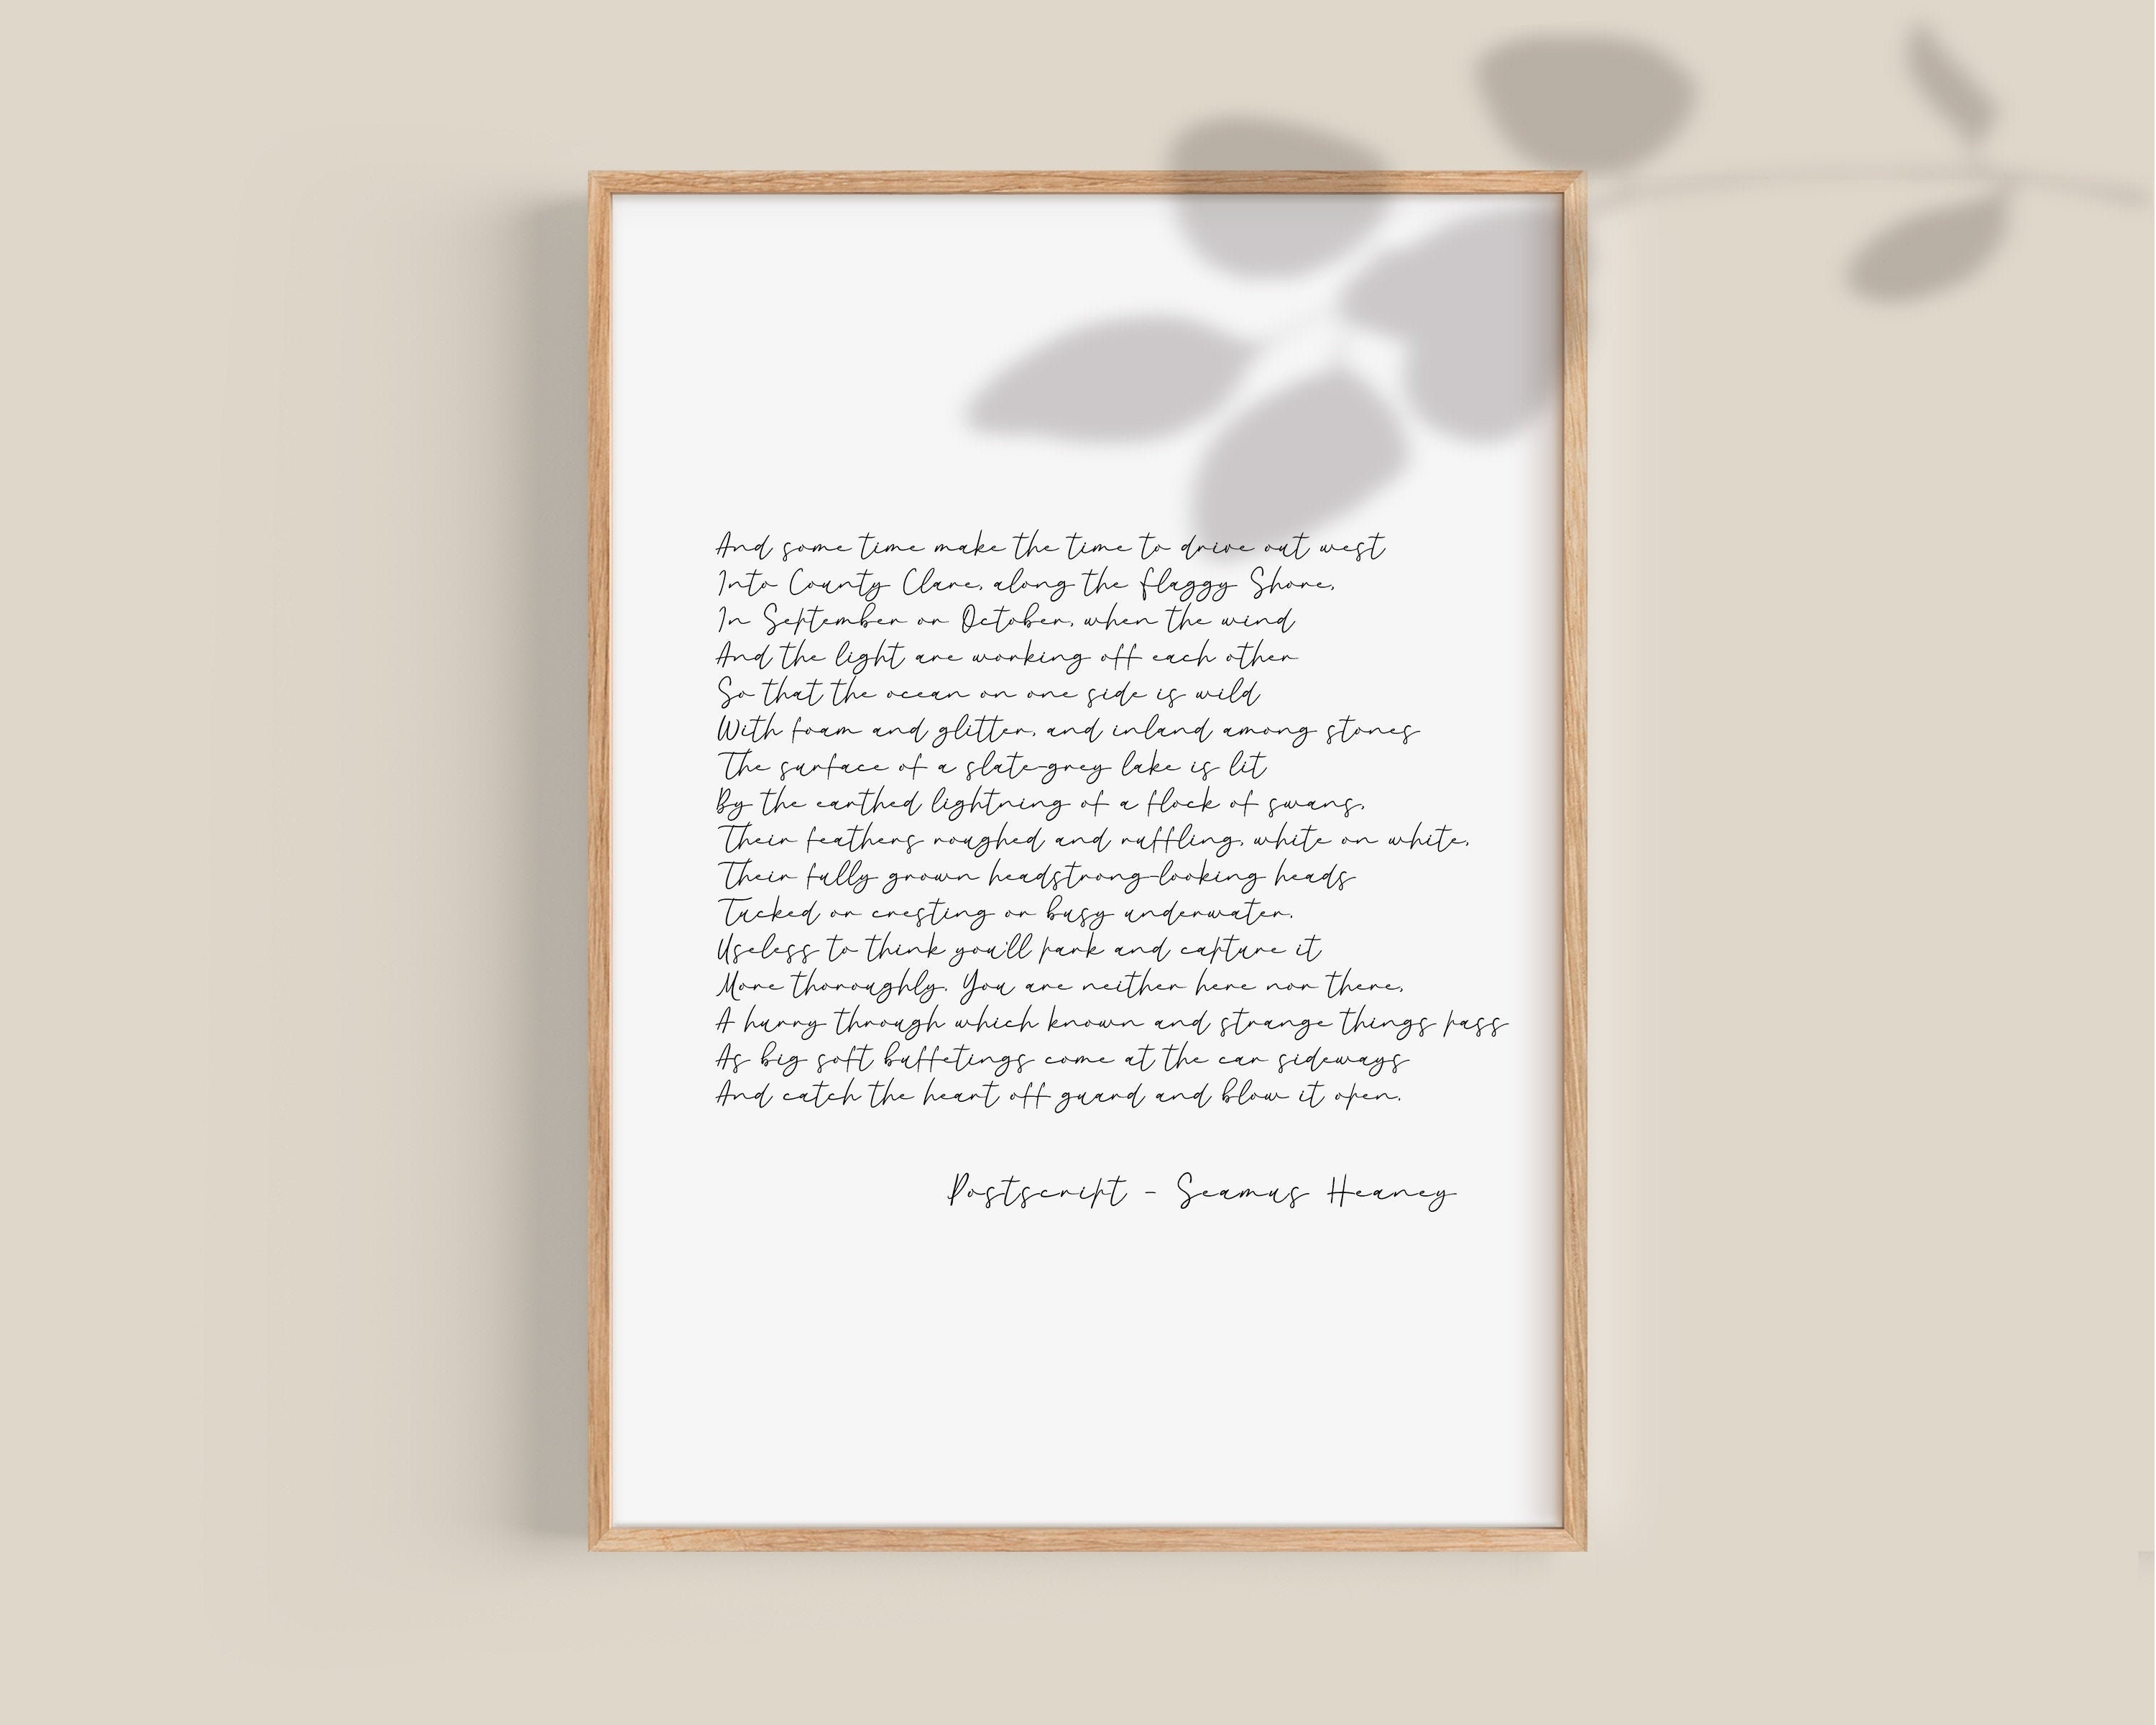 And some time make the time to drive out west
Into County Clare, along the Flaggy Shore,
In September or October, when the wind
And the light are working off each other
So that the ocean on one side is wild
With foam and glitter, and inland among stones
The surface of a slate-grey lake is lit
By the earthed lightning of a flock of swans,
Their feathers roughed and ruffling, white on white,
Their fully grown headstrong-looking heads
Tucked or cresting or busy underwater.
Useless to think you'll park and capture it
More thoroughly. You are neither here nor there,
A hurry through which known and strange things pass
As big soft buffetings come at the car sideways
And catch the heart off guard and blow it open.
Postscript - Seamus Heaney